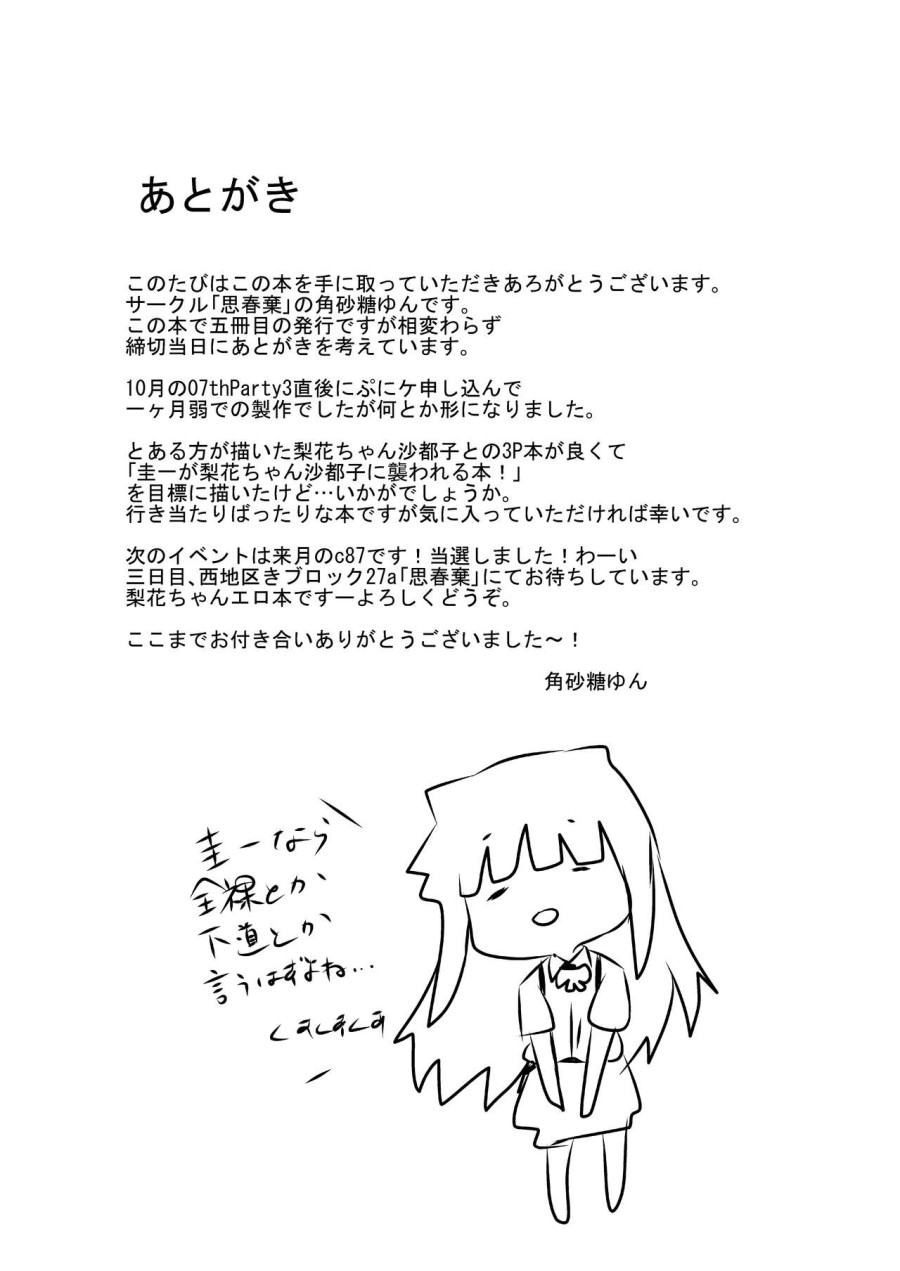 あとがき
このたびはこの本を手に取っていただきあろがとうございます。
サークル｢思春棄｣の角砂糖ゆんです。
この本で五冊目の発行ですが相変わらず
締切当日にあとがきを考えています。
10月の07thParty3直後にぷにケ申し込んで
一ヶ月弱での製作でしたが何とか形になりました。
とある方が描いた梨花ちゃん沙都子との3P本が良くて
｢圭一が梨花ちゃん沙都子に襲われる本！｣
を目標に描いたけど…いかがでしょうか。
行き当たりばったりな本ですが気に入っていただければ幸いです。
次のイベントは来月のc87です！当選しました！わーい
三日目､西地区きブロック27a｢思春棄｣にてお待ちしています。
梨花ちゃんエロ本ですーよろしくどうぞ。
ここまでお付き合いありがとうございました～！
角砂糖ゆん
圭一なら
全裸とか
下道とか
言うはずよね…